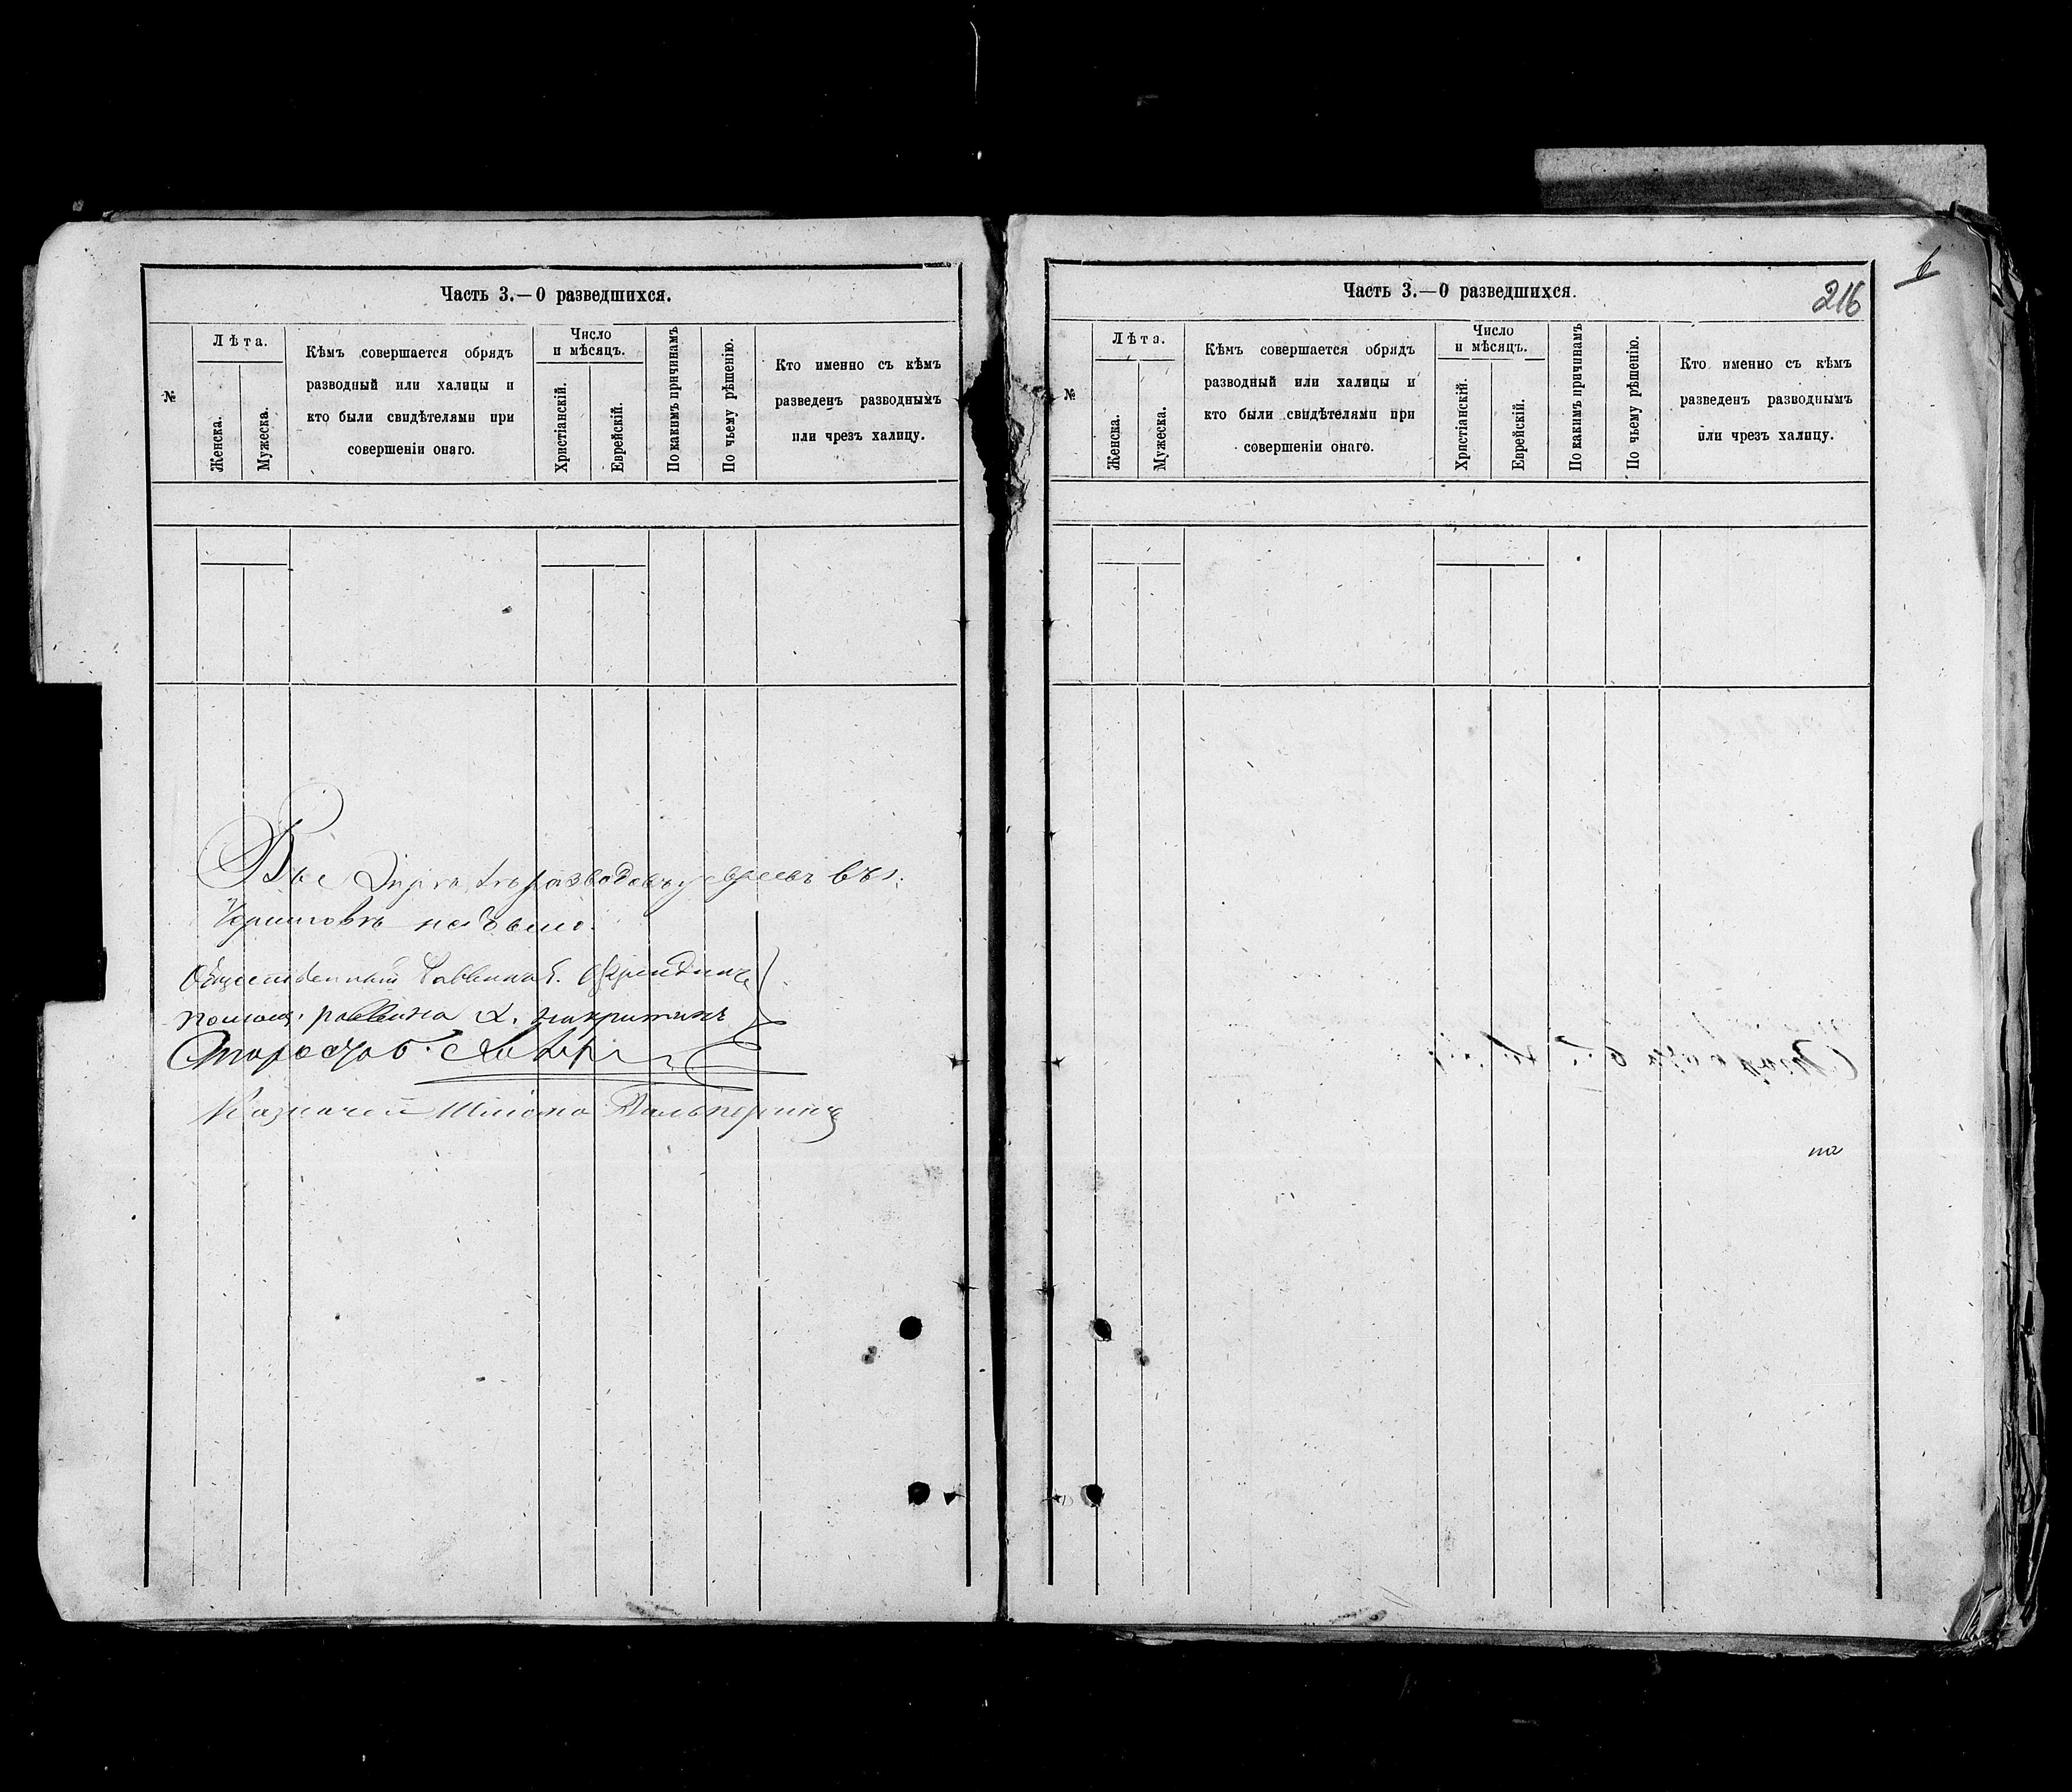 Часть 3.—О разведшихся.
№
Лѣта.
Женска.
Мужеска.
Кѣмъ совершается обрядъ
разводный или халицы и
кто были свидѣтелями при
совершеніи онаго.
Число
и мѣсяцъ.
Христіанскій.
Еврейскій.
По какимъ причинамъ
По чьему рѣшенію.
Кто именно съ кѣмъ
разведенъ разводнымъ
или чрезъ халицу.
разводовъ у евреевъ въ г.
Черниговѣ не было.
Общественный Раввинъ
помощ. раввина
Староста
Казначей Шлиома Гальперинъ
Часть 3.—О разведшихся.
216
№
Лѣта.
Женска.
Мужеска.
Кѣмъ совершается обрядъ
разводный или халицы и
кто были свидѣтелями при
совершеніи онаго.
Число
и мѣсяцъ.
Христіанскій.
Еврейскій.
По какимъ причинамъ
По чьему рѣшенію.
Кто именно съ кѣмъ
разведенъ разводнымъ
или чрезъ халицу.
на